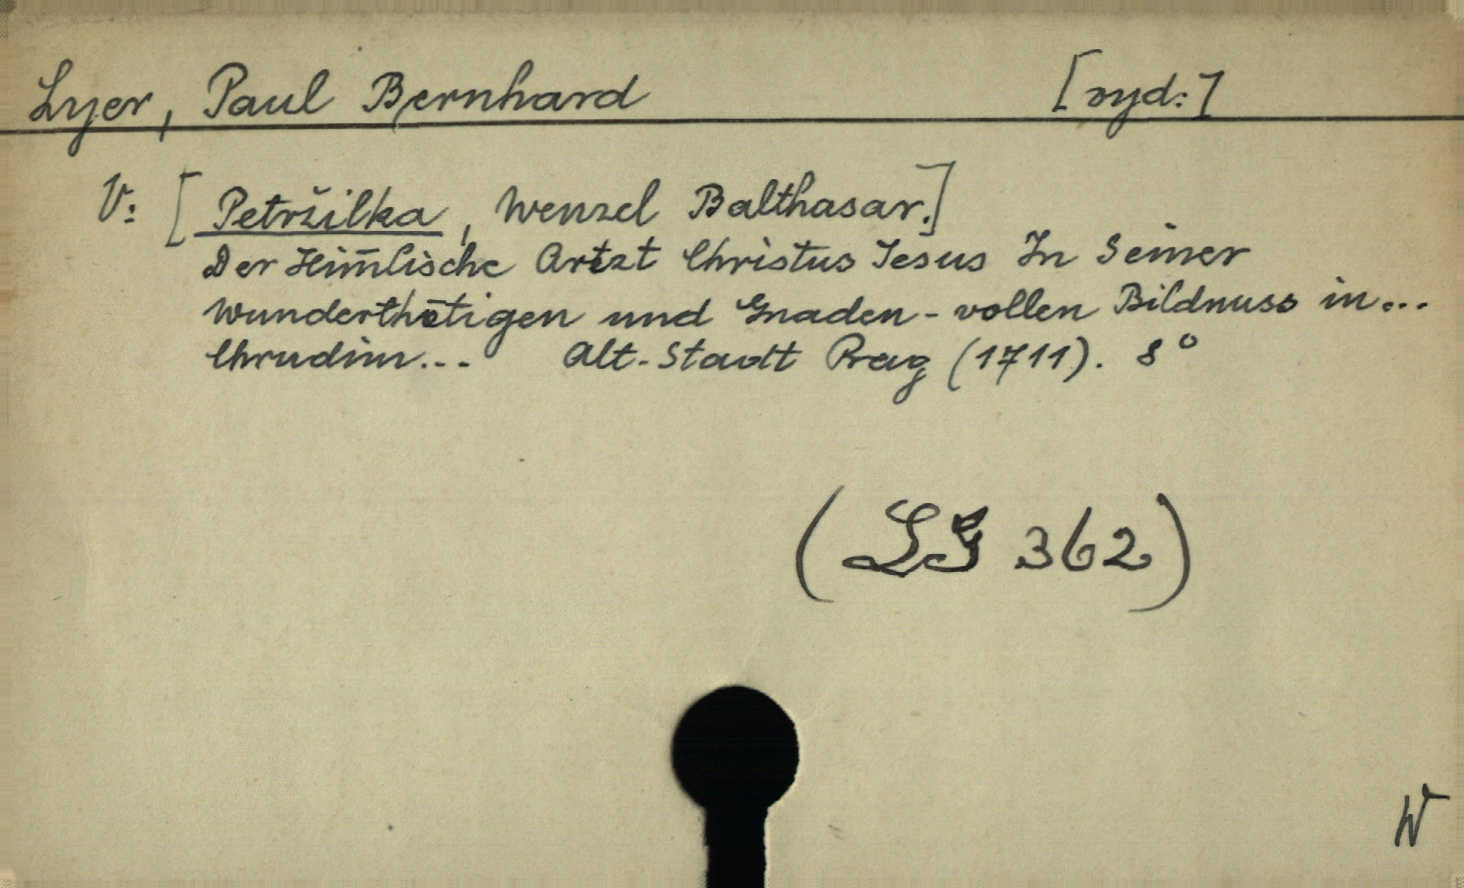 Lyer, Paul Bernhard [vyd.:]
V: [Petržilka, Wenzel Balthasar.]
Der Him̄lische Artzt Christus Jesus In Seiner
Wunderthetigen und Gnaden-vollen Bildnuss in...
Chrudim... Alt-Stadt Prag (1711). 8°
(362)
W